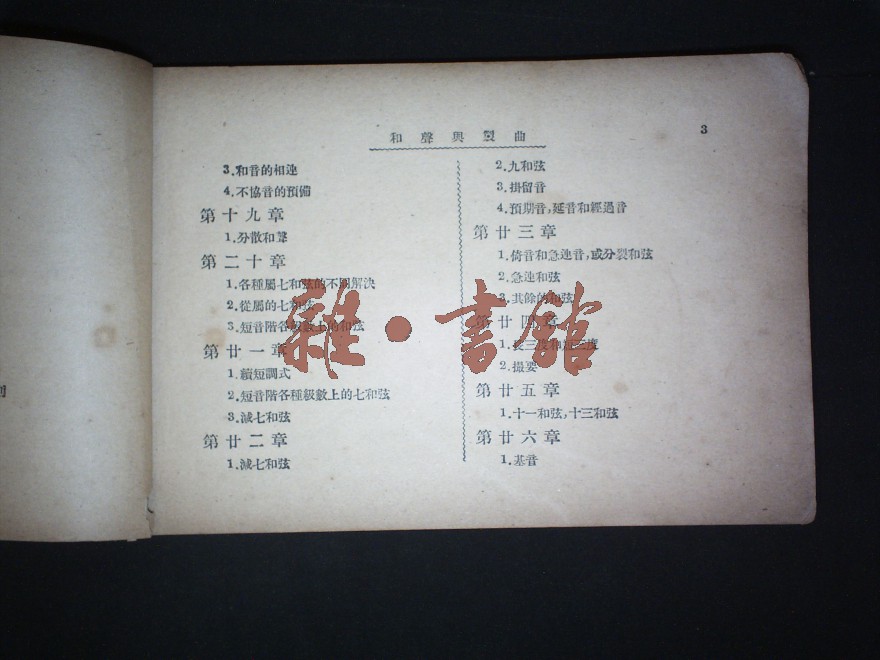 和聲與製曲
3
3.和音的相連
4.不協音的預備
第十九章
1.分散和聲
第二十章
1.各種屬七和弦的不同解決
2.從屬的七和弦
3.短音階各級數上的和弦
第廿一章
1.續短調式
2.短音階各種級數上的七和弦
3.減七和弦
第廿二章
1.減七和弦
2.九和弦
3.掛留音
4.預期音,延音和經過音
第廿三章
1.倚音和急速音,或分裂和弦
2.急速和弦
3.其餘的和弦
第廿四章
1.長三度和短三度
2.撮要
第廿五章
1.十一和弦,十三和弦
第廿六章
1.基音
雜·書館